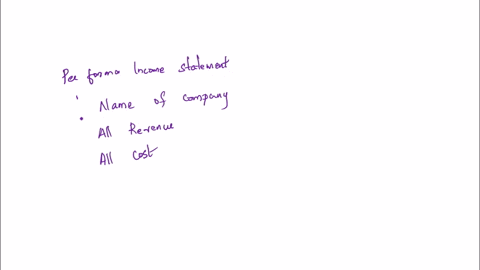 Per forma Income statement
Name of company
All Revenue
All cost